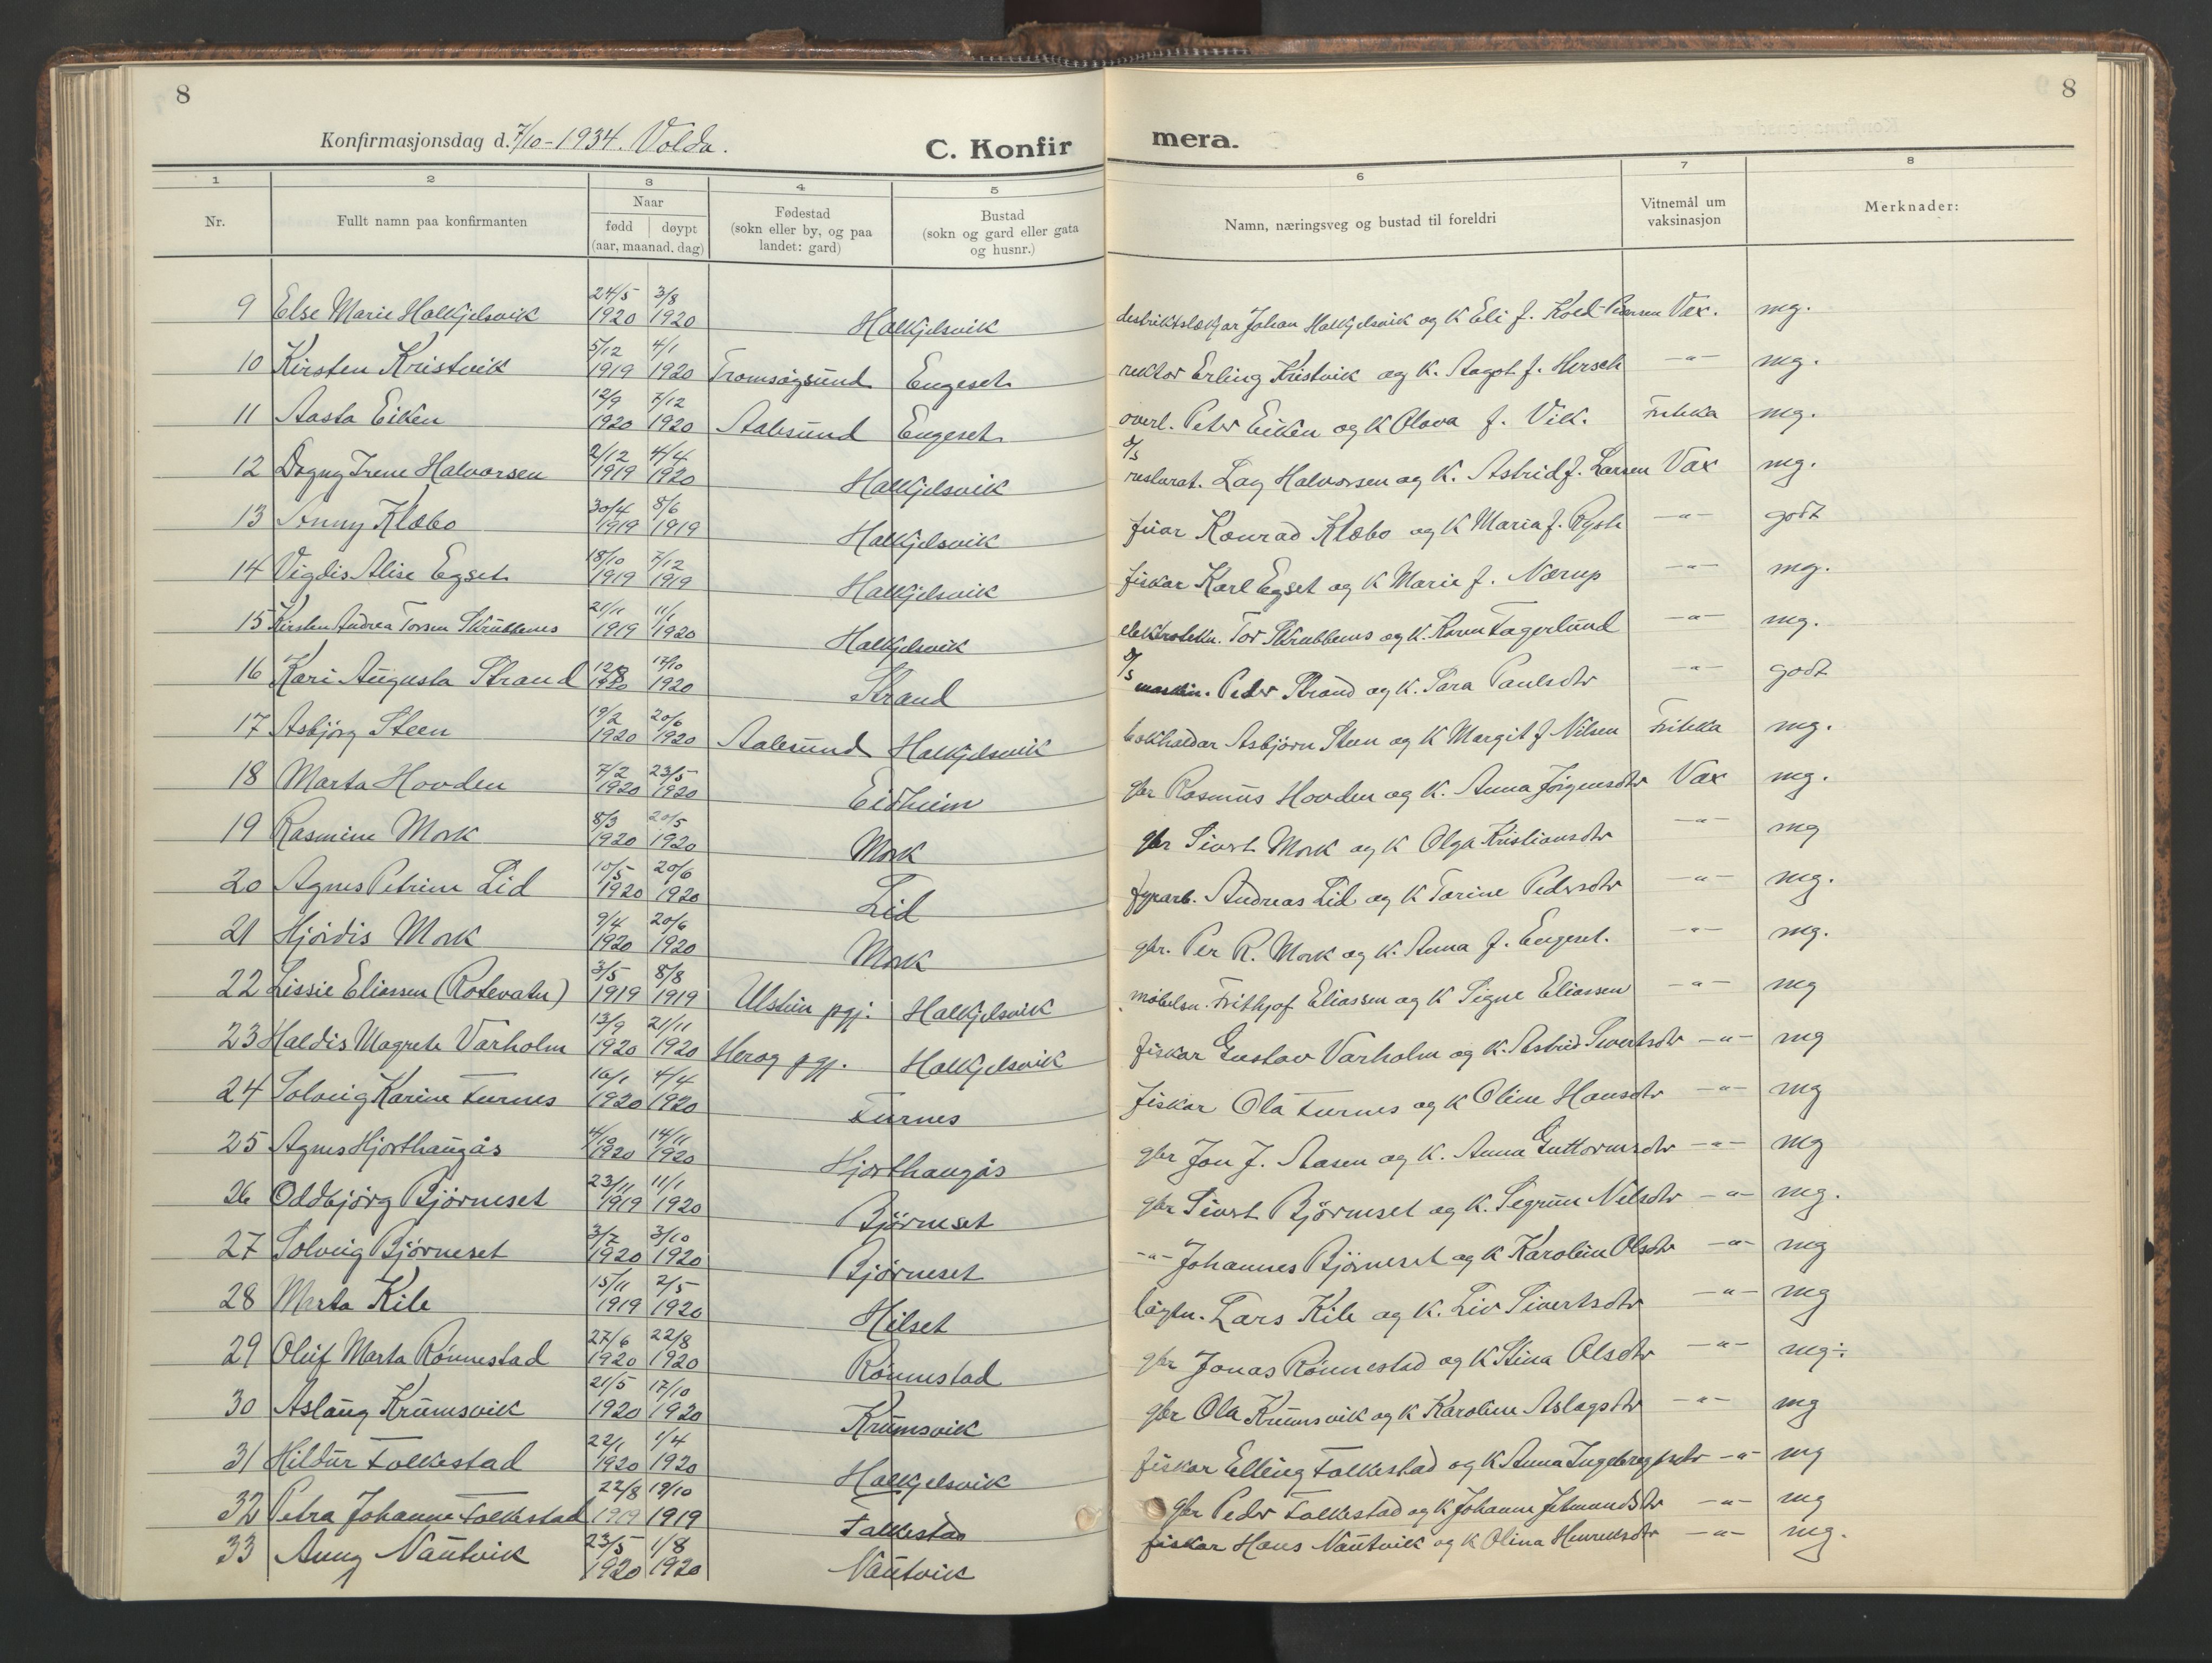 8
8
Konfirmasjonsdag d. 7/10-1934. Volda.
C. Konfir mera.
1 2 3 4 5 6 7 8
Nr. Fullt namn paa konfirmanten Naar fødd døypt (aar, maanad, dag) Fødestad (sokn eller by, og paa landet: gard) Bustad (sokn og gard eller gata og husnr.) Namn, næringsveg og bustad til foreldri Vitnemål um vaksinasjon Merknader:
9 Else Marie Halkjelsvik 24/5 1920 3/8 1920 Halkjelsvik destriktslækjar Johan Halkjelsvik og K Eli f. Koed- Vax. mg.
10 Kirsten Kristvik 5/12 1919 4/1 1920 Tromsøysund Engeset rektor Erling Kristvik og K. Aagot f. Hersch -"- mg.
11 Aasta Eiken 12/9 1920 7/12 1920 Aalesund Engeset overl. Peter Eiken og K Olava f. Vik. Friteka mg.
12 Dagny Irene Halvorsen 2/12 1919 4/4 1920 Halkjelsvik restarat. Lag Halvorsen og K. Astrid f. Larsen Vax mg.
13 Anny Klæbo 30/4 1919 8/6 1919 Halkjelsvik Konrad Klæbo og K Maria f. -"- godt
14 Vigdis Alise Egset 18/10 1919 7/12 1919 Halkjelsvik fiskar Karl Egset og K Marie f. Nærup -"- mg.
15 Kirsten Andrea Torsen Skrubbenes 21/11 1919 11/1 1920 Halkjelsvik elektrotekn. Tor Skrubbenes og K. Karen Fagerlund -"- mg.
16 Kari Augusta Strand 12/8 1920 17/10 1920 Strand maskin. Peder Strand og K. Sara Paulsdtr -"- godt
17 Asbjørg Steen 19/2 1920 20/6 1920 Aalesund Halkjelsvik bokhaldar Asbjørn Steen og K Margit f Nilsen Friteka mg.
18 Marta Hovden 7/2 1920 23/5 1920 Eidheim gbr Rasmus Hovden og K. Anna Jørgensdtr Vax mg.
19 Rasmine Mork 8/3 1920 20/5 1920 Mork gbr Sivert Mork og K Olga Kristiansdtr -"- mg
20 Agnes Petrine Lid 10/5 1920 20/6 1920 Lid fyrarb. Andreas Lid og K Tarine Pedersdtr -"- mg.
21 Hjördis Mork 9/4 1920 20/6 1920 Mork gbr. Per R. Mork og K. Anna f. Engeset. -"- mg.
22 Lissie Eliassen (Rotevatn) 3/5 1919 8/8 1919 Ulstein pgj. Halkjelsvik møbelsn. Frithjof Eliassen og K Signe Eliassen -"- mg
23 Haldis Magrete Varholm 13/9 1920 21/11 1920 Herøy pgj. Halkjelsvik fiskar Gustav Varholm og K. Astrid Sivertsdtr -"- mg
24 Solveig Karine Furnes 16/1 1920 4/4 1920 Furnes fiskar Ola Furnes og K Oline Hansdtr -"- mg
25 Agnes Hjorthaugås 4/10 1920 14/11 1920 Hjorthaugås gbr Jon J. Aasen og K. Anna Guttormsdtr -"- mg
26 Oddbjörg Björneset 23/11 1919 11/1 1920 Björneset gbr Sivert Björneset og K. Segrun Nilsdtr -"- mg.
27 Solveig Björneset 3/7 1920 3/10 1920 Björneset -"- Johannes Björneset og K Karoline Olsdtr -"- mg
28 Marta Kile 15/11 1919 2/5 1920 Hilset Lars Kile og K. Liv Sivertsdtr -"- mg
29 Oluf Marta Rønnestad 27/6 1920 22/8 1920 Rønnestad gbr Jonas Rønnestad og K Stina Olsdtr -"- mg÷
30 Aslaug Krumsvik 21/5 1920 17/10 1920 Krumsvik gbr Ola Krumsvik og K Karoline Aslagsdtr -"- mg
31 Hildur Folkestad 22/1 1920 1/4 1920 Halkjelsvik fiskar Elling Folkestad og K Anna Ingebregtsdtr -"- mg
32 Petra Johanne Folkestad 22/8 1919 19/10 1919 Folkestad gbr Peder Folkestad og K Johanne Jetmundsdtr -"- mg
33 Anny Nautvik 23/5 1920 1/8 1920 Nautvik fiskar Hans Nautvik og K Olina Henriksdtr -"- mg.